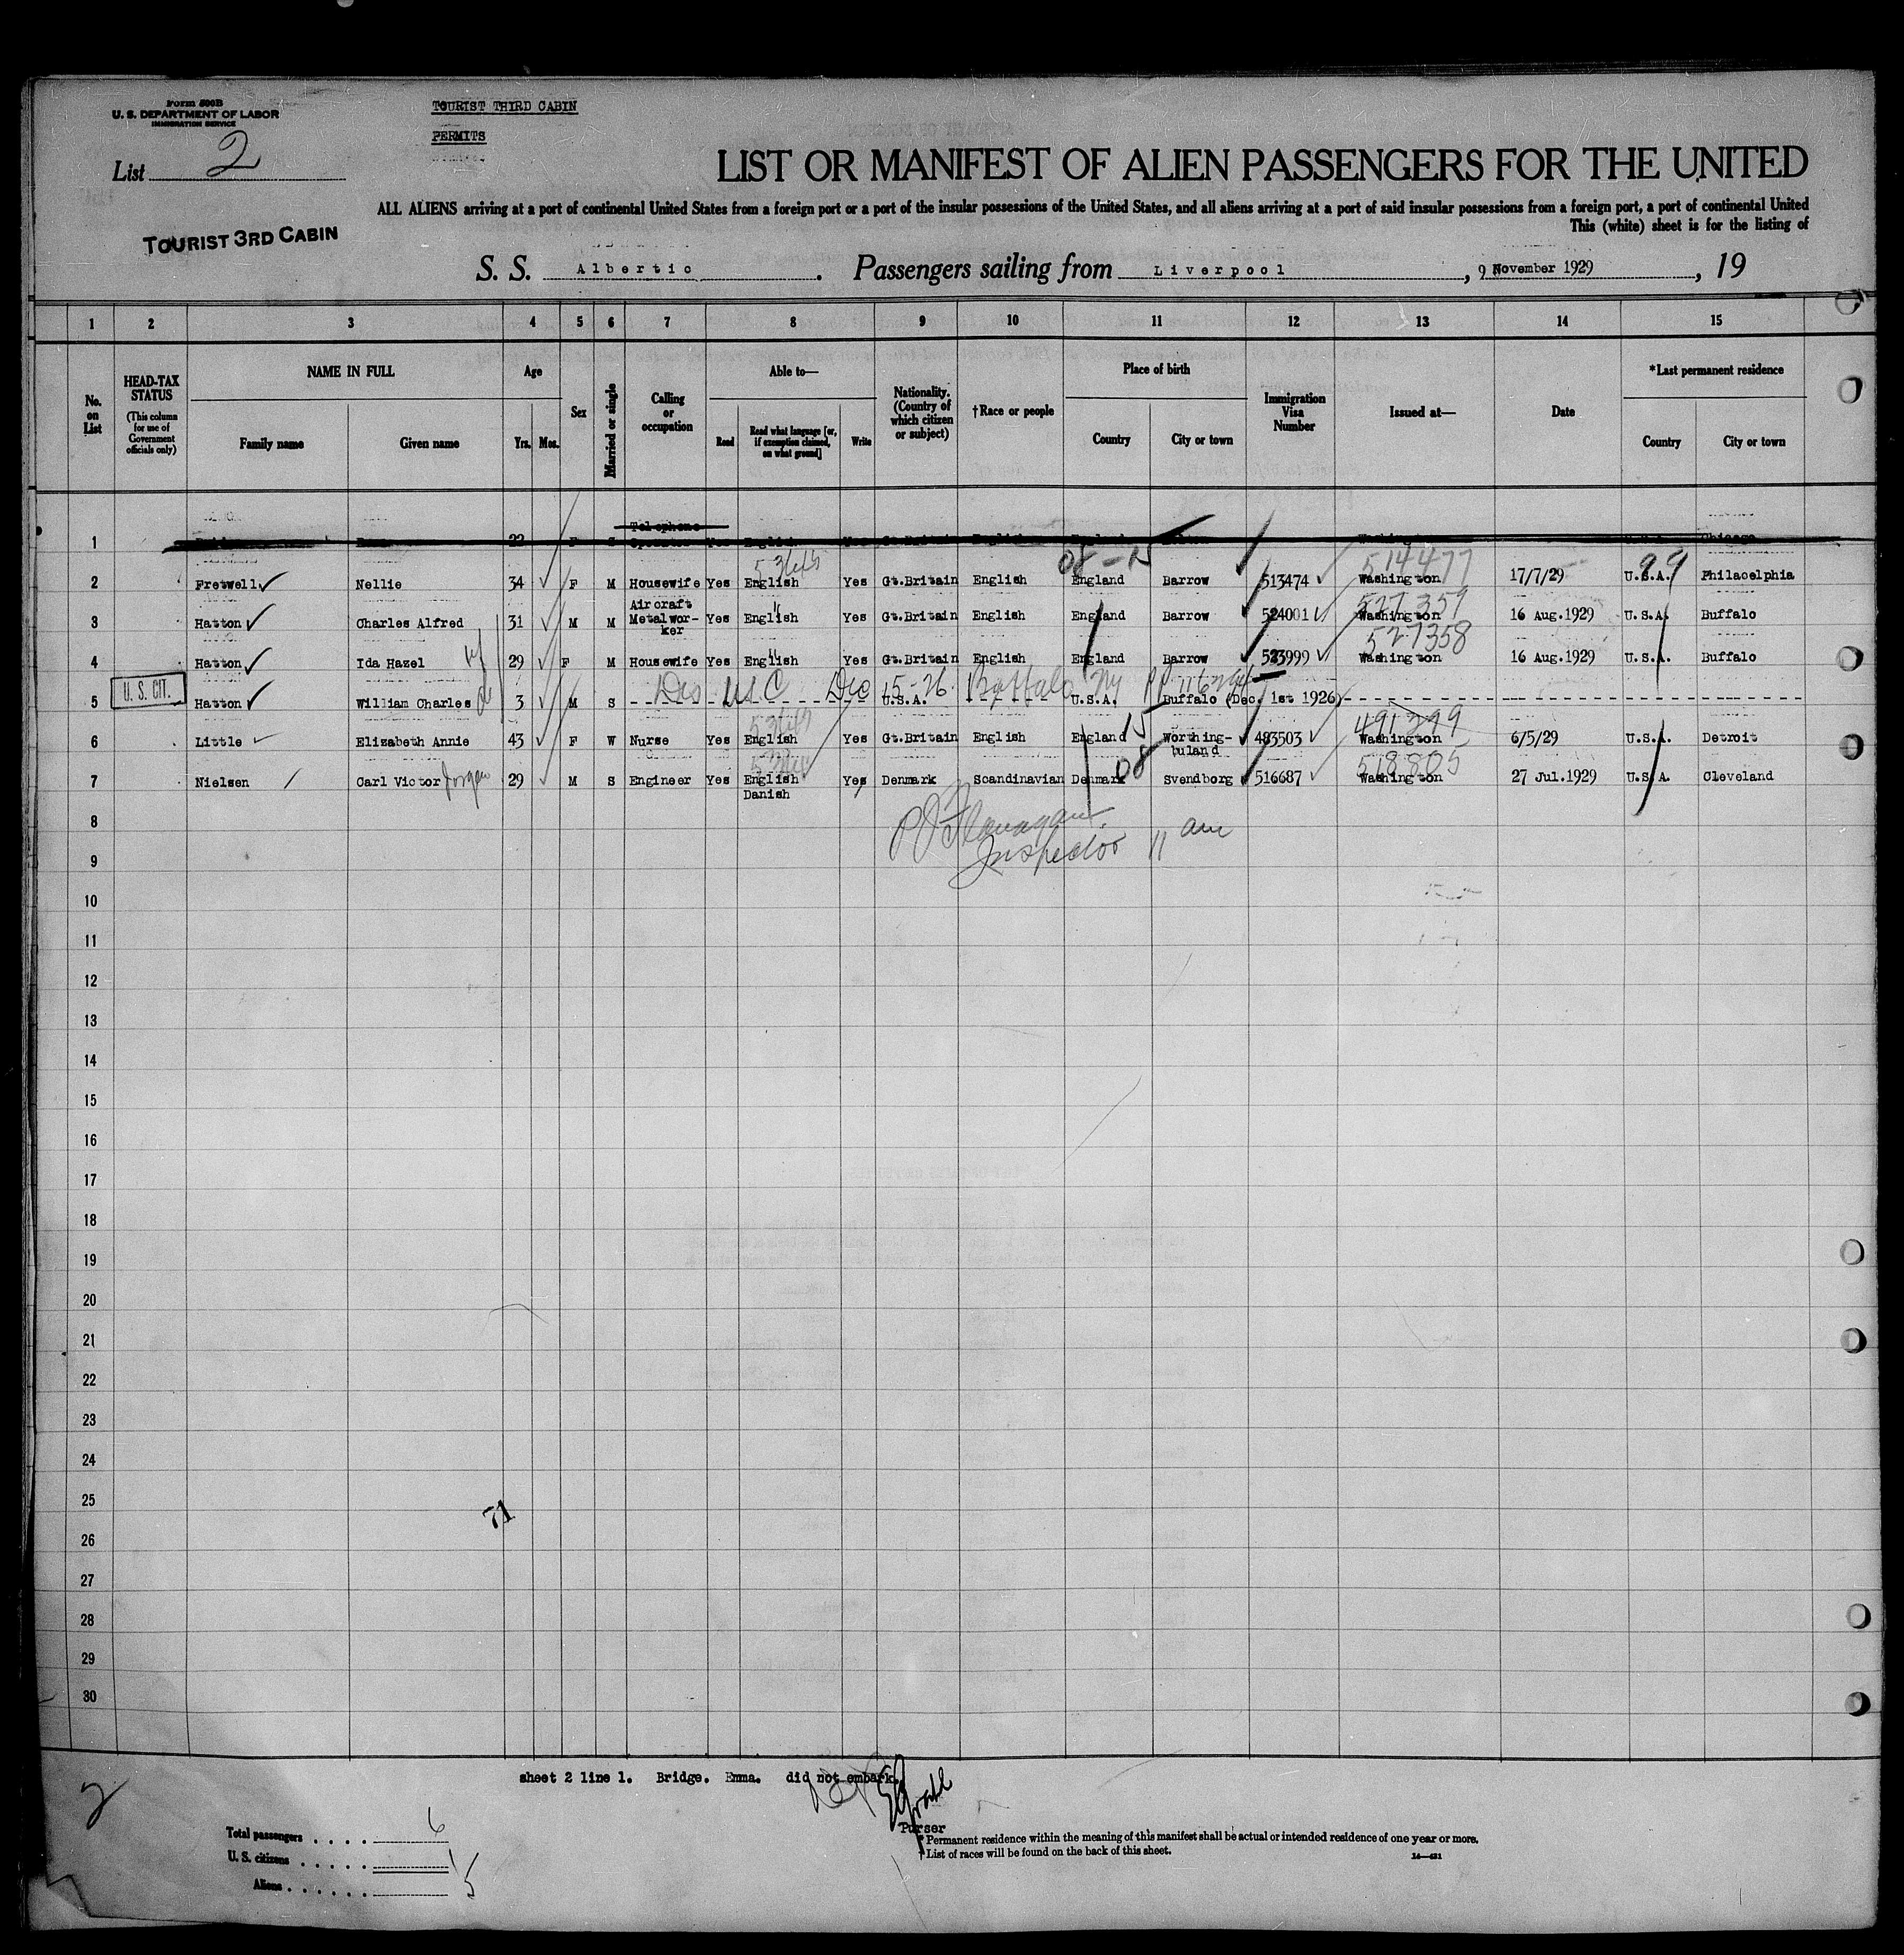 Form 500B
U. S. DEPARTMENT OF LABOR
IMMIGRATION SERVICE
TOURIST THIRD CABIN
PERMITS
List 2
LIST OR MANIFEST OF ALIEN PASSENGERS FOR THE UNITED
ALL ALIENS arriving at a port of continental United States from a foreign port or a port of the insular possessions of the United States, and all aliens arriving at a port of said insular possessions from a foreign port, a port of continental United
This (white) sheet is for the listing of
TOURIST 3RD CABIN
S. S. Albertic. Passengers sailing from Liverpool, 9 November 1929, 19
1 2 3 4 5 6 7 8 9 10 11 12 13 14 15
No. on List
HEAD-TAX STATUS (This column for use of Government officials only)
NAME IN FULL Family name Given name
Age Yrs. Mos.
Sex
Married or single
Calling or occupation
Able to— Read Read what language [or, if exemption claimed, on what ground] Write
Nationality. (Country of which citizen or subject)
†Race or people
Place of birth Country City or town
Immigration Visa Number
Issued at—
Date
*Last permanent residence Country City or town
1 22 F Telephone Operator Yes English Yes Gt.Britain English England Washington U.S.A. Chicago
08
53645 514477 99
2 Fretwell Nellie 34 F M Housewife Yes English Yes Gt.Britain English England Barrow 513474 Washington 17/7/29 U.S.A. Philadelphia
527359
3 Hatton Charles Alfred 31 M M Aircraft Metalwor-ker Yes English Yes Gt.Britain English England Barrow 524001 Washington 16 Aug.1929 U.S.A. Buffalo
527358
4 Hatton Ida Hazel wf 29 F M Housewife Yes English Yes Gt.Britain English England Barrow 523999 Washington 16 Aug.1929 U.S.A. Buffalo
U. S. CIT.
USC Dec 15-26 Buffalo NY PP
5 Hatton William Charles 3 M S U.S.A. U.S.A. Buffalo (Dec. 1st 1926)
491299
6 Little Elizabeth Annie 43 F W Nurse Yes English Yes Gt.Britain English England Worthing-tuland 483503 Washington 6/5/29 U.S.A. Detroit
15
08 518805
7 Nielsen Carl Victor Jorgen 29 M S Engineer Yes English Danish Yes Denmark Scandinavian Denmark Svendborg 516687 Washington 27 Jul.1929 U.S.A. Cleveland
8
P J Flanagan
Inspector 11 am
9
10
11
12
13
14
15
16
17
18
19
20
21
22
23
24
25
71
26
27
28
29
30
sheet 2 line 1. Bridge. Emma. did not embark.
2
Purser
Total passengers . . . . 6
U. S. citizens . . . . . 1
Aliens . . . . . . 5
* Permanent residence within the meaning of this manifest shall be actual or intended residence of one year or more.
† List of races will be found on the back of this sheet.
14—431